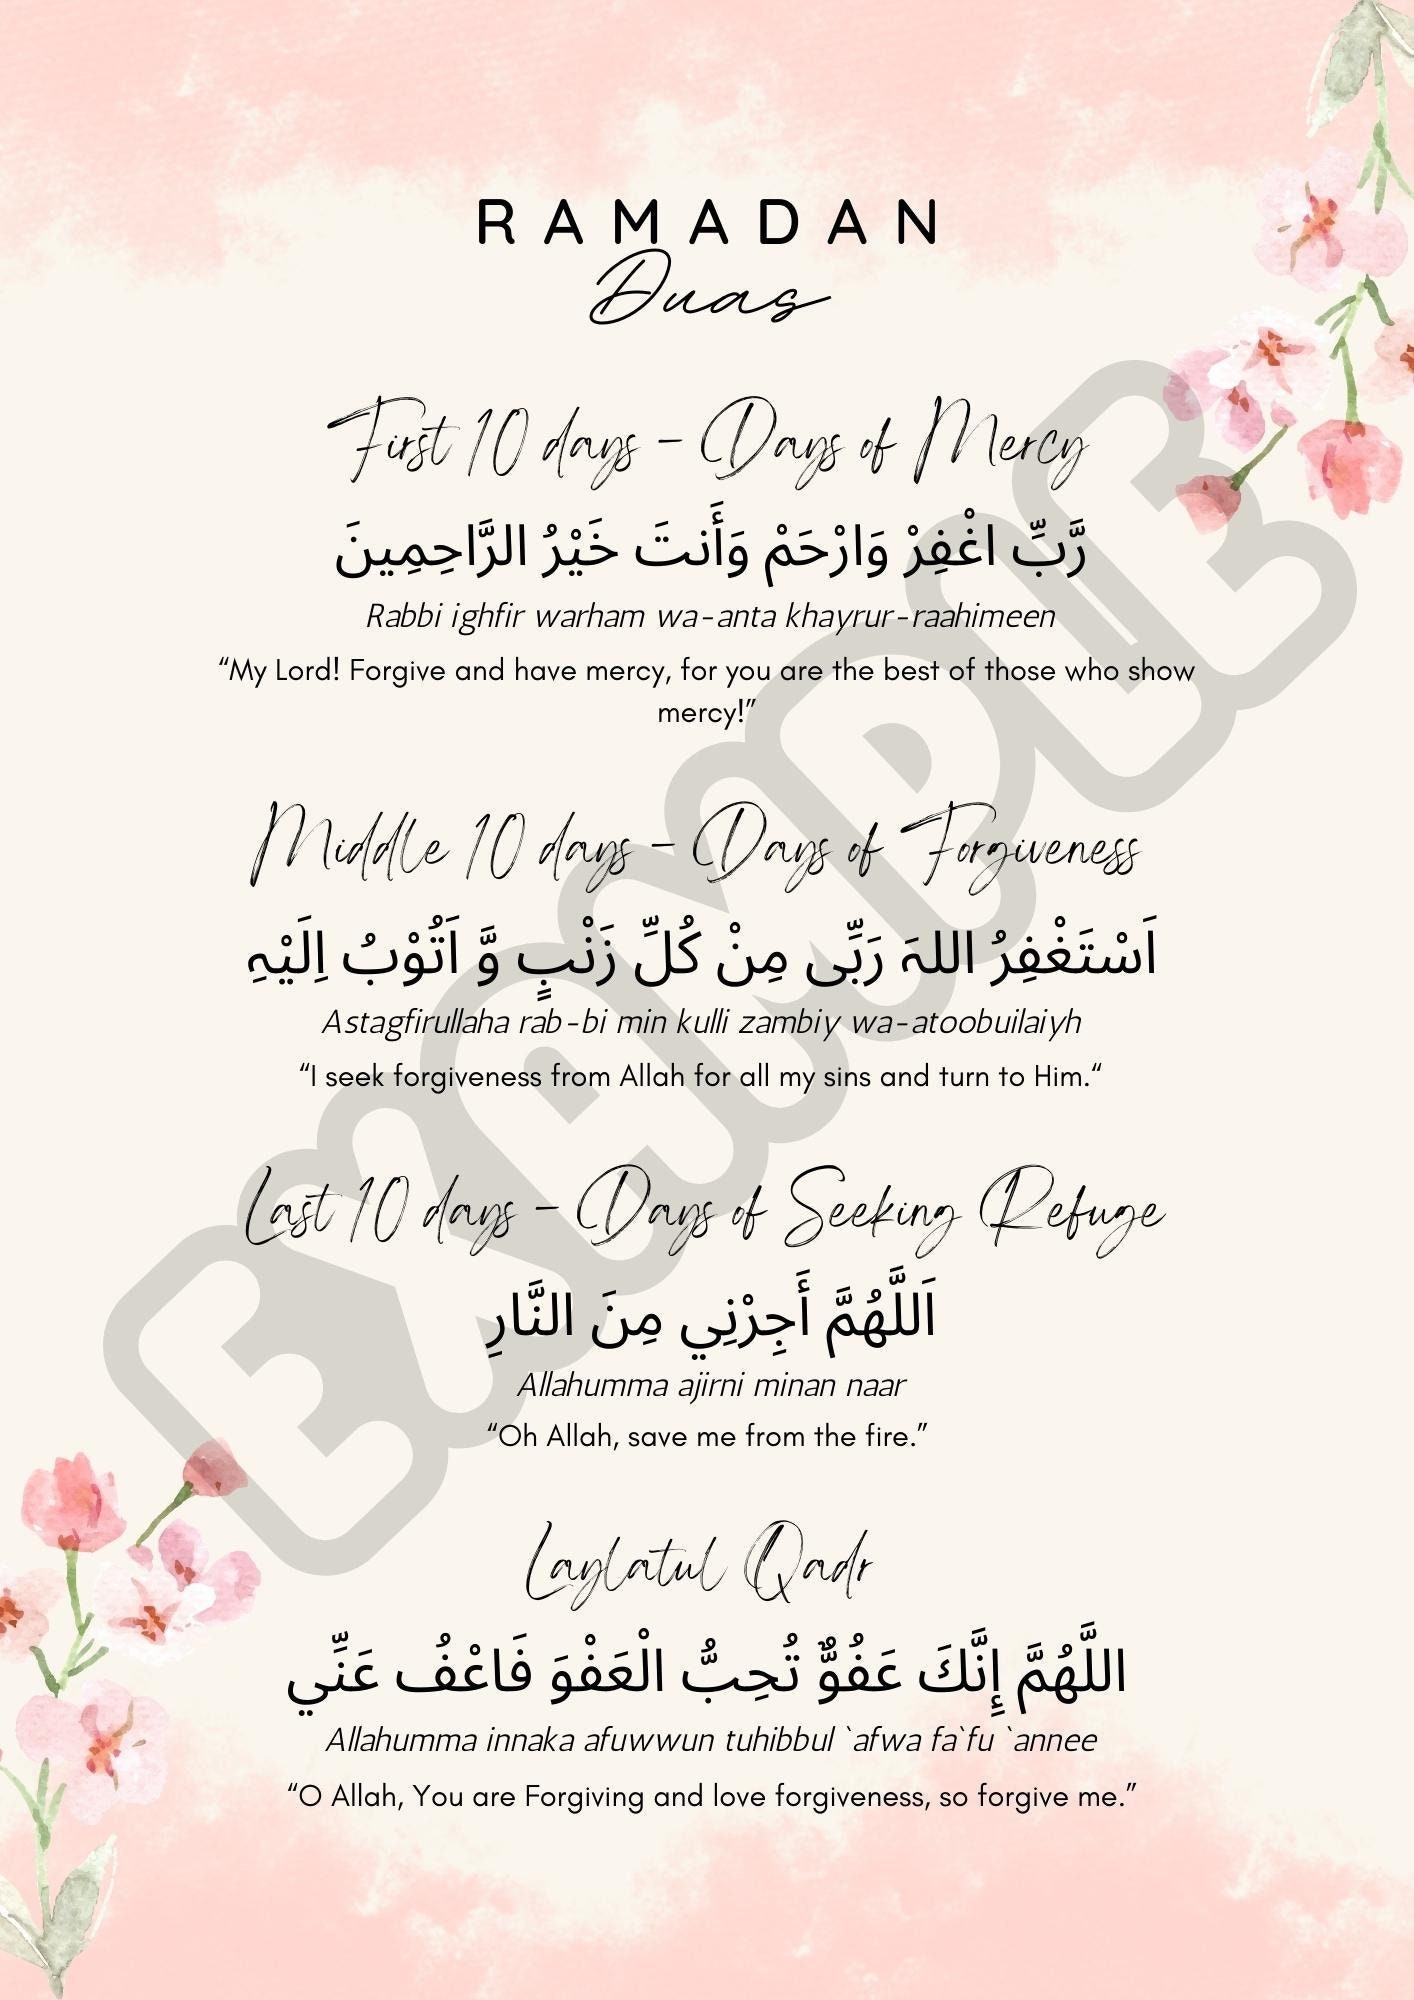 RAMADAN
Duas
First 10 days - Days of Mercy
رَّبِّ اغْفِرْ وَارْحَمْ وَأَنتَ خَيْرُ الرَّاحِمِينَ
Rabbi ighfir warham wa-anta khayrur-raahimeen
“My Lord! Forgive and have mercy, for you are the best of those who show
mercy!”
Middle 10 days - Days of Forgiveness
اَسْتَغْفِرُ اللہَ رَبِّی مِنْ کُلِّ زَنْبٍ وَّ اَتُوْبُ اِلَیْہِ
Astagfirullaha rab-bi min kulli zambiy wa-atoobuilaiyh
“I seek forgiveness from Allah for all my sins and turn to Him.“
Last 10 days - Days of Seeking Refuge
اَللَّهُمَّ أَجِرْنِي مِنَ النَّارِ
Allahumma ajirni minan naar
“Oh Allah, save me from the fire.”
Laylatul Qadr
اللَّهُمَّ إِنَّكَ عَفُوٌّ تُحِبُّ الْعَفْوَ فَاعْفُ عَنِّي
Allahumma innaka afuwwun tuhibbul `afwa fa`fu `annee
“O Allah, You are Forgiving and love forgiveness, so forgive me.”
EXAMPLE